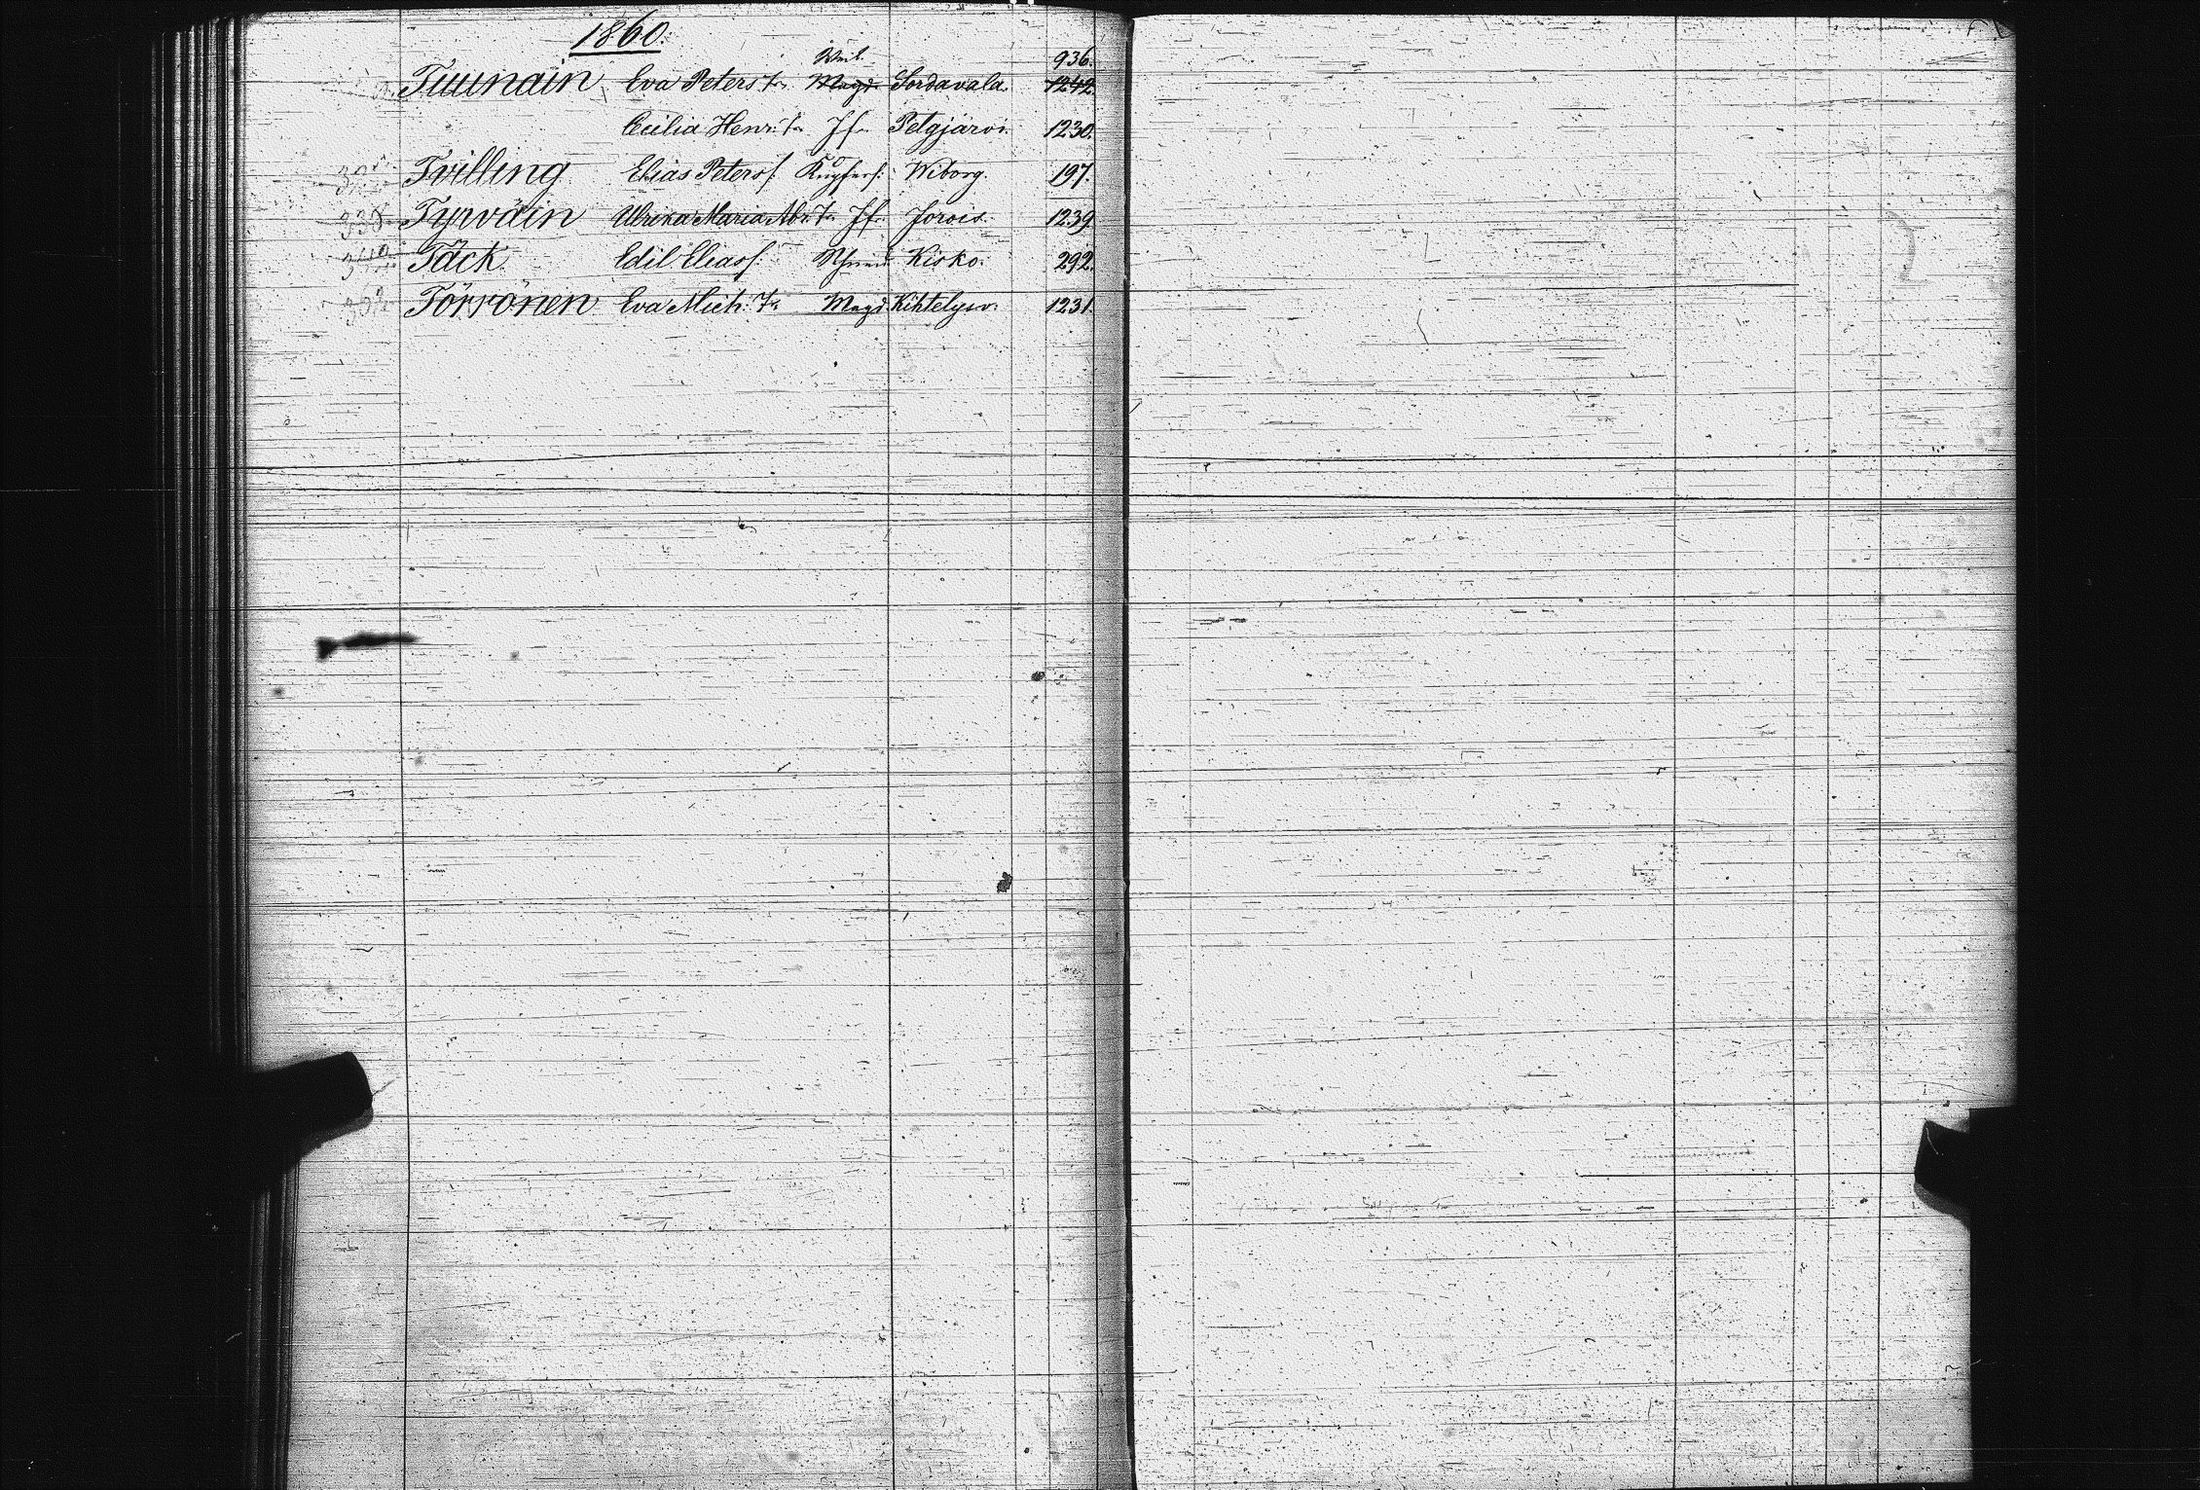 1860.
936.
Tuunain Eva Petersd:r Magd. Sordavala. 1242.
Cecilia Henr: d:r Jf. Pelgjärvi. 1230.
Tvilling Elias Peterss. Wiborg. 197.
338 Tyrväin Ulrika Maria Abr: d:r Jf. Jorois. 1239.
340 Täck Edil Eliass. Kisko. 292.
Törrönen Eva Mich: d:r Magd. Kihtelysv. 1231.